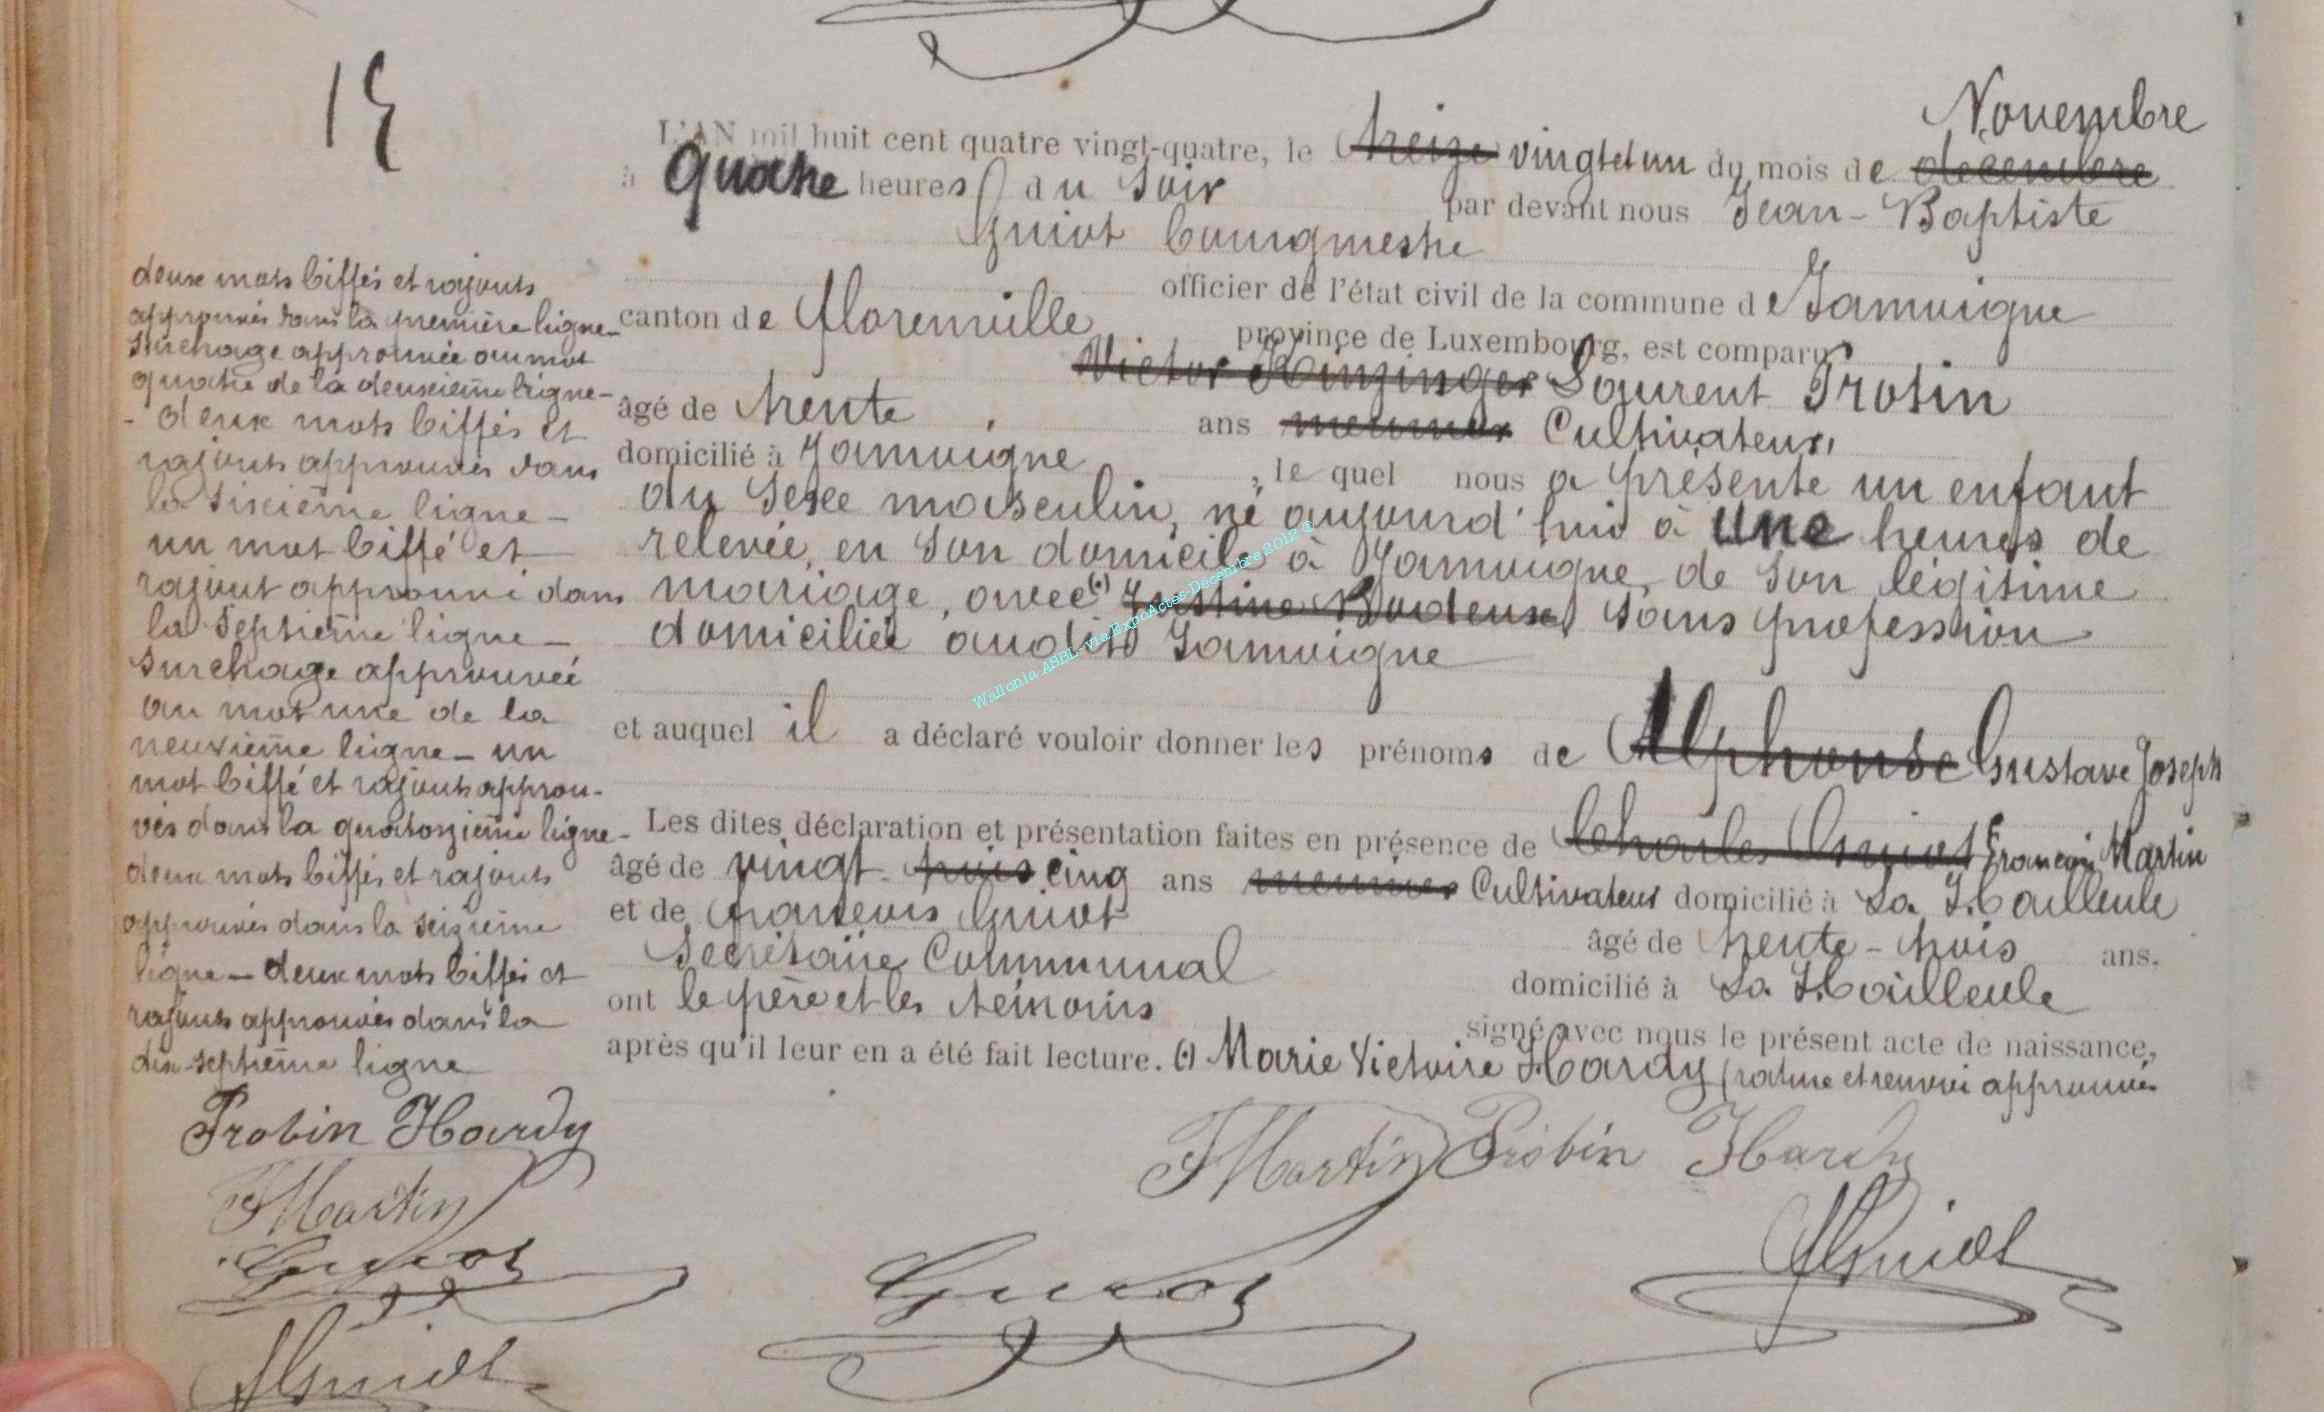 15
L'AN mil huit cent quatre vingt-quatre, le treize vingt et un du mois de décembre Novembre
à quatre heures du soir par devant nous Jean-Baptiste
Guiot bourgmestre
officier de l'état civil de la commune de Jamoigne
canton de Florenville province de Luxembourg, est comparu
Victor Kinzinger Laurent Probin
âgé de trente ans meunier Cultivateur,
domicilié à Jamoigne, le quel nous a présenté un enfant
du sexe masculin, né aujourd'hui à une heures de
relevée, en son domicile à Jamoigne, de son légitime
mariage, avec (.) Justine Bodeux, sans profession
domiciliée audit Jamoigne
et auquel il a déclaré vouloir donner les prénoms de Alphonse Gustave Joseph
Les dites déclaration et présentation faites en présence de Charles Guiot François Martin
âgé de vingt-trois cinq ans meunier Cultivateur domicilié à La Hailleule
et de François Guiot âgé de trente-trois ans.
Secrétaire Communal domicilié à La Hailleule
ont le père et les témoins signé avec nous le présent acte de naissance,
après qu'il leur en a été fait lecture. (.) Marie Victoire Hardy (rature et renvoi approuvés
deux mots biffés et rajouts
approuvés dans la première ligne-
surchage approuvée au mot
quatre de la deuxième ligne-
- deux mots biffés et
rajouts approuvés dans
la sixième ligne -
un mot biffé et
rajout approuvé dans
la septième ligne -
surchage approuvée
au mot une de la
neuvième ligne - un
mot biffé et rajouts approu-
vés dans la quatorzième ligne-
deux mots biffés et rajouts
approuvés dans la seizième
ligne - deux mots biffés et
rajouts approuvés dans la
dix-septième ligne
Probin Hardy
FMartin
Guiot
FGuiot
FMartin Probin Hardy
Guiot
FGuiot
Wallonia ASBL via ExpoActes-Décembre 2012 ©